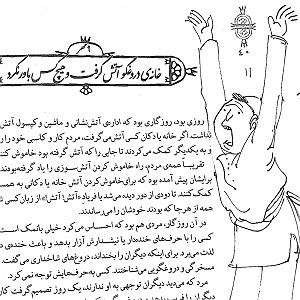 ۹
۴۰
۱۱
خانه‌ی دروغگو آتش گرفت و هیچ کس باور نکرد
روزی بود، روزگاری بود که اداره‌ی آتش‌نشانی و ماشین و کپسول آتش
نداشت. اگر خانه یا دکان کسی آتش می‌گرفت، مردم کار و کاسبی خود را ر
و به یکدیگر کمک می‌کردند تا جایی را که آتش گرفته بود خاموش کنند
تقریباً همه‌ی مردم، راه خاموش کردن آتش‌سوزی را یاد گرفته بودند
برایشان پیش آمده بود که برای خاموش کردن آتش خانه یا دکانی به همسـ
کمک کنند. تا دودی از دور دیده می‌شد یا فریاد «آتش! آتش!» از زبان کسی شـ
همه از هر جا که بودند خودشان را می‌رساندند.
در آن روزگار، مردی هم بود که احساس می‌کرد خیلی بانمک است
کسی را با حرف‌های خنده‌دار یا نیشدارش آزار بدهد و باعث خنده‌ی د
لذت می‌برد. برای اینکه دیگران را بخنداند، دروغ‌های شاخداری می‌گفت.
مسخرگی و دروغگویی می‌شناختند. کسی به حرف‌هایش توجه نمی‌کرد.
مرد که می‌دید دیگران توجهی به او ندارند، یک روز تصمیم گرفت کار